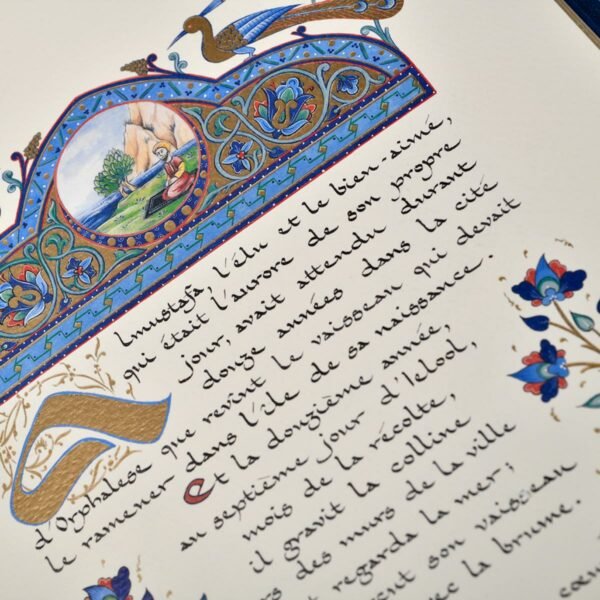 Almustafa, l'élu et le bien-aimé,
qui était l'aurore de son propre
jour, avait attendu durant
douze années dans la cité
d'Orphalese que revînt le vaisseau qui devait
le ramener dans l'île de sa naissance.
Et la douzième année,
au septième jour d'Ielool,
mois de la récolte,
il gravit la colline
des murs de la ville
regarda la mer;
son vaisseau
la brume.